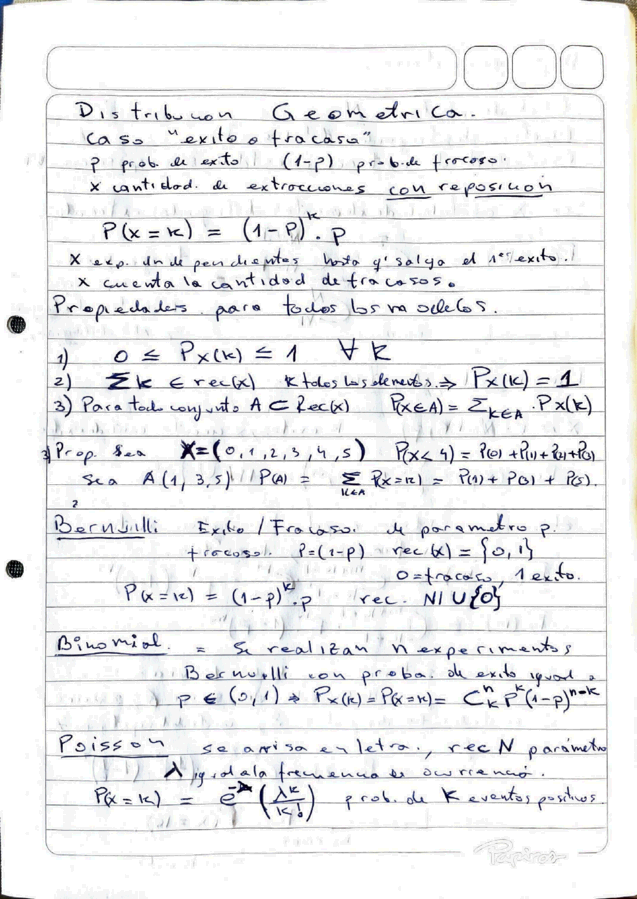 Distribucion Geometrica.
caso "exito o fracaso"
p prob. de exito (1-p) prob. de fracaso.
x cantidad. de extracciones con reposicion
P(x=k) = (1-P)^k . p
x exp. independientes hasta q' salga el 1er exito.
x cuenta la cantidad de fracasos.
Propiedades para todos los modelos.
1) 0 ≤ Px(k) ≤ 1 ∀ k
2) Σk ∈ rec(x) k todos los elementos. ⇒ Px(k) = 1
3) Para todo conjunto A ⊂ Rec(x) P(x∈A) = Σ_{K∈A} . Px(k)
3) Prop. Sea X=(0,1,2,3,4,5) P(x<4) = P(0) + P(1) + P(2) + P(3)
Sea A(1,3,5) P(A) = Σ_{K∈A} P(x=k) = P(1) + P(3) + P(5).
?
Bernulli Exito / Fracaso. de parametro p.
fracaso. P=(1-p) rec(x) = {0,1}
0=fracaso, 1 exito.
P(x=k) = (1-p)^k . p rec. N U {0}
Binomial. = Se realizan n experimentos
Bernulli con proba. de exito igual a
p ∈ (0,1) ⇒ Px(k) = P(x=k) = C^n_k P^k (1-p)^{n-k}
Poisson se avisa en letra., rec N parámetro
λ igual a la frecuencia de ocurrencia.
P(x=k) = e^{-λ} (λk/k!) prob. de K eventos positivos.
Papiros